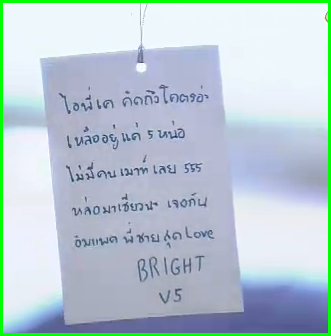 ไอพี่เค คิดถึงโคตรอ่ะ
เหลืออยู่แค่ 5 หน่อ
ไม่มีคนเมาท์เลย 555
หล่อมาเชียวนะ เจอกัน
อิมแพค พี่ชายสุด Love
BRIGHT
V5